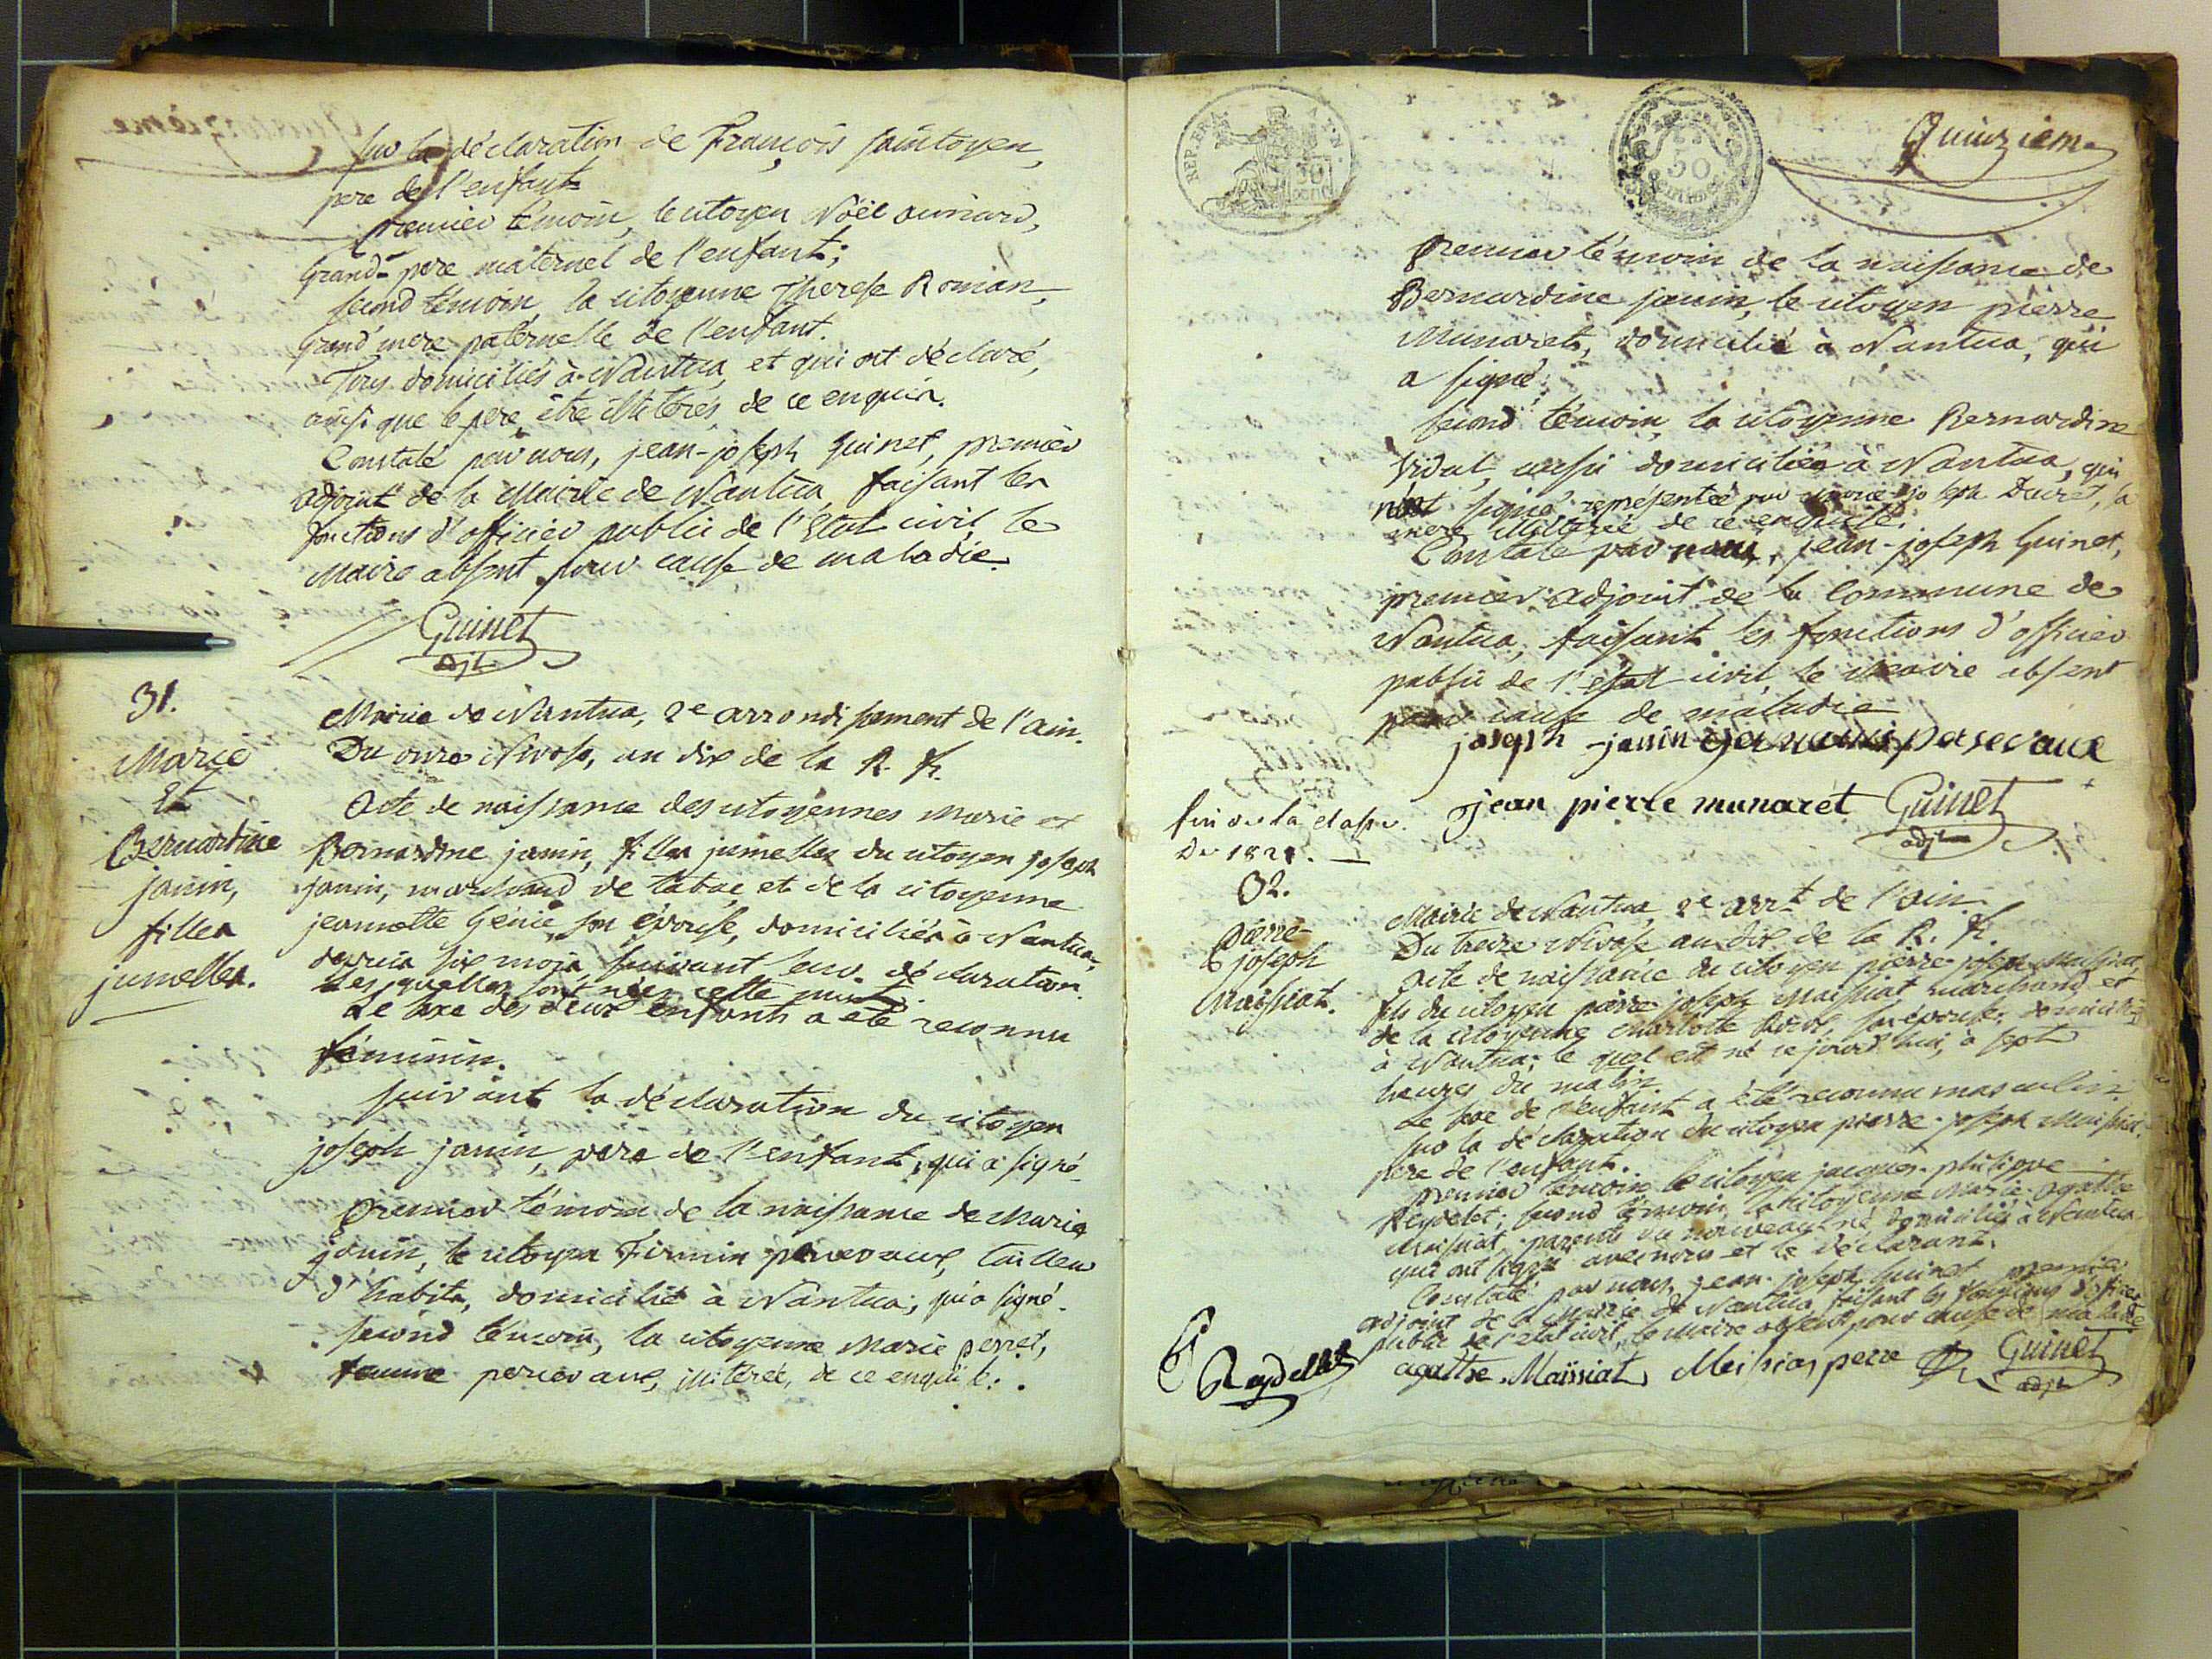 Sur la déclaration de François saintoyen,
pere de l'enfant
premier témoin, le citoyen Noël
Grand-pere maternel de l'enfant;
second témoin, la citoyenne Therese Roman,
Grand'mere paternelle de l'enfant.
Tous domiciliés à Nantua, et qui ont déclaré,
ainsi que le pere, être illitérés, de ce enquis.
Constaté par nous, jean-joseph Guinet, premier
adjoint de la Mairie de Nantua, faisant les
fonctions d'officier public de l'Etat civil, le
Maire absent pour cause de maladie.
Guinet
adjt
31.
Marie
Et
Bernardine
janin,
filles
jumelles.
Mairie de Nantua, 2e arrondissement de l'ain.
Du onze Nivose, an dix de la R. f.
Acte de naissance des citoyennes Marie et
Bernardine janin, filles jumelles du citoyen joseph
janin, marchand de tabac, et de la citoyenne
jeannette Génie, son épouse, domiciliés à Nantua,
depuis six mois, suivant leur déclaration.
Lesquelles sont nées cette nuit.
Le sexe des deux enfants a été reconnu
féminin.
suivant la déclaration du citoyen
joseph janin, pere de l'enfant, qui a signé.
Premier témoin de la naissance de Marie
janin, le citoyen Firmin percevaux, tailleur
d'habits, domicilié à Nantua, qui a signé.
second témoin, la citoyenne Marie perret,
femme percevaux, illitérée, de ce enquise.
REP. FRA.
50
Quinzieme
premier témoin de la naissance de
Bernardine janin, le citoyen pierre
Munaret, domicilié à Nantua, qui
a signé.
second témoin, la citoyenne Bernardine
Vidal, aussi domiciliée à Nantua, qui
n'est signé représentée par marie-joseph Ducret, sa
mere illitérée de ce enquise.
Constaté par nous, jean-joseph Guinet,
premier adjoint de la Commune de
Nantua, faisant les fonctions d'officier
public de l'état civil, le Maire absent
pour cause de maladie
joseph janin persevaux
jean pierre munaret Guinet
adjt
fin de la classe
De 1821.
32.
pierre-
joseph
Maissiat.
Mairie de Nantua, 2e arrt de l'ain.
Du treize Nivose an dix de la R. f.
Acte de naissance du citoyen pierre-joseph Maissiat,
fils du citoyen pierre joseph Maissiat marchand, et
de la citoyenne charlotte son épouse, domiciliés
à Nantua; le quel est né ce jourd'hui, à sept
heures du matin.
Le sexe de l'enfant a été reconnu masculin.
sur la déclaration du citoyen pierre-joseph Maissiat,
pere de l'enfant.
premier témoin le citoyen jacques-philippe
Reydelet; second témoin, la citoyenne Marie-agathe
Maissiat, parents du nouveau né, domiciliés à Nantua
qui ont signé avec nous et le déclarant.
Constaté par nous, jean-joseph Guinet premier
adjoint de la Mairie de Nantua, faisant les fonctions d'officier
public de l'état civil, le Maire absent pour cause de maladie
Reydellet agathe Maissiat Meissias pere Guinet
adjt